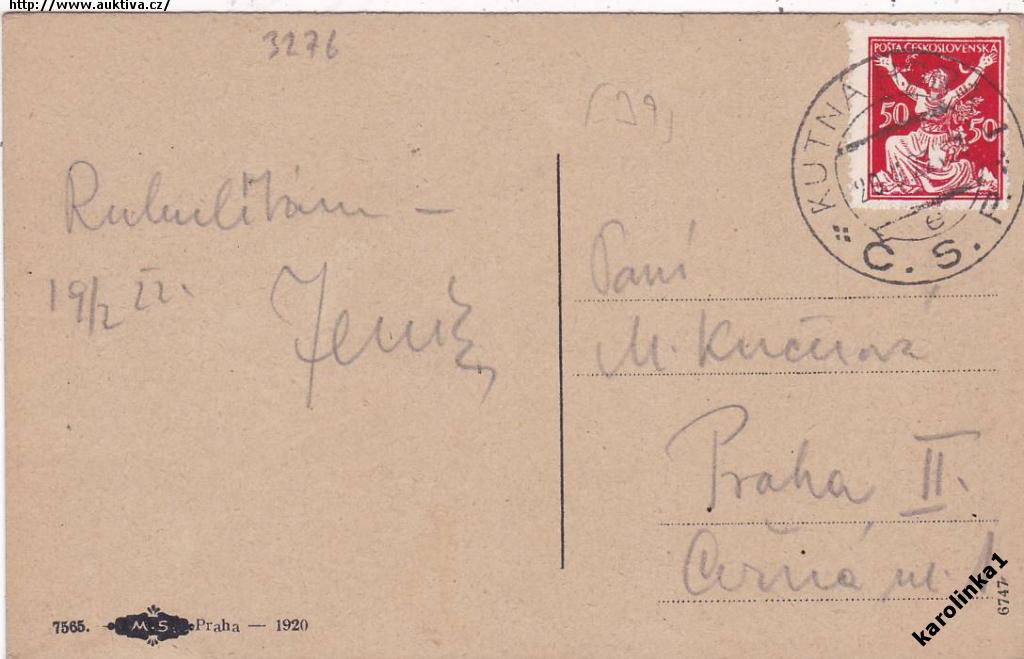 http://www.auktiva.cz/
3276
POŠTA ČESKOSLOVENSKA
50 50
KUTNÁ
Č. S. P.
e
Rukulíbám —
19/2 22.
Jeník
Paní
M. Kučerová
Praha II.
Černá ul. 1
7565. M.S. Praha — 1920
6747
karolinka1